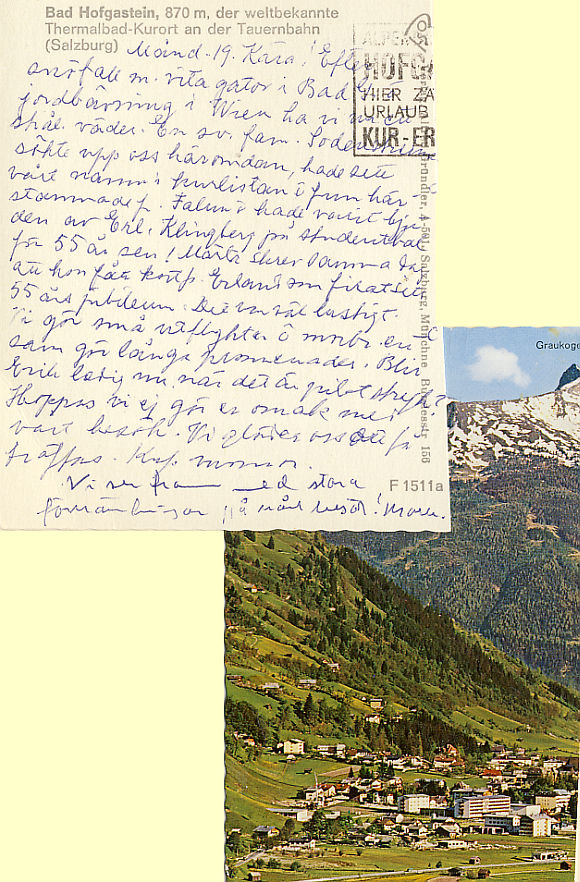 Bad Hofgastein, 870 m, der weltbekannte
Thermalbad-Kurort an der Tauernbahn
(Salzburg)
Månd. 19. Kära! Efter
snöfall m. vita gator i Bad
jordbävning i Wien ha vi nu en
strål. väder. En sv. fam. Söderström
sökte upp oss häromdan, hade sett
vårt namn i kurlistan i fru här-
stammade fr. Falun i hade varit bju-
den av Erl. Klingberg på studentbal
för 55 år sen! Märta skrev samma dag
att hon fått kort fr. Erland som firat sitt
55 års jubileum. Det var väl lustigt.
Vi gör små utflykter o morbr. en-
sam gör långa promenader. Blir
Erik ledig nu, när det är pilotstrejk?
Hoppas vi ej gör er omak med
vårt besök. Vi gläder oss att få
träffas. Kram mormor.
Vi ser fram med stora
förväntningar på vårt besök! Morm.
HOFG
HIER
URLAUB
KUR-ER
ründler, A-501 Salzburg, Münchne Bundesstr 156
F 1511a
Graukoge